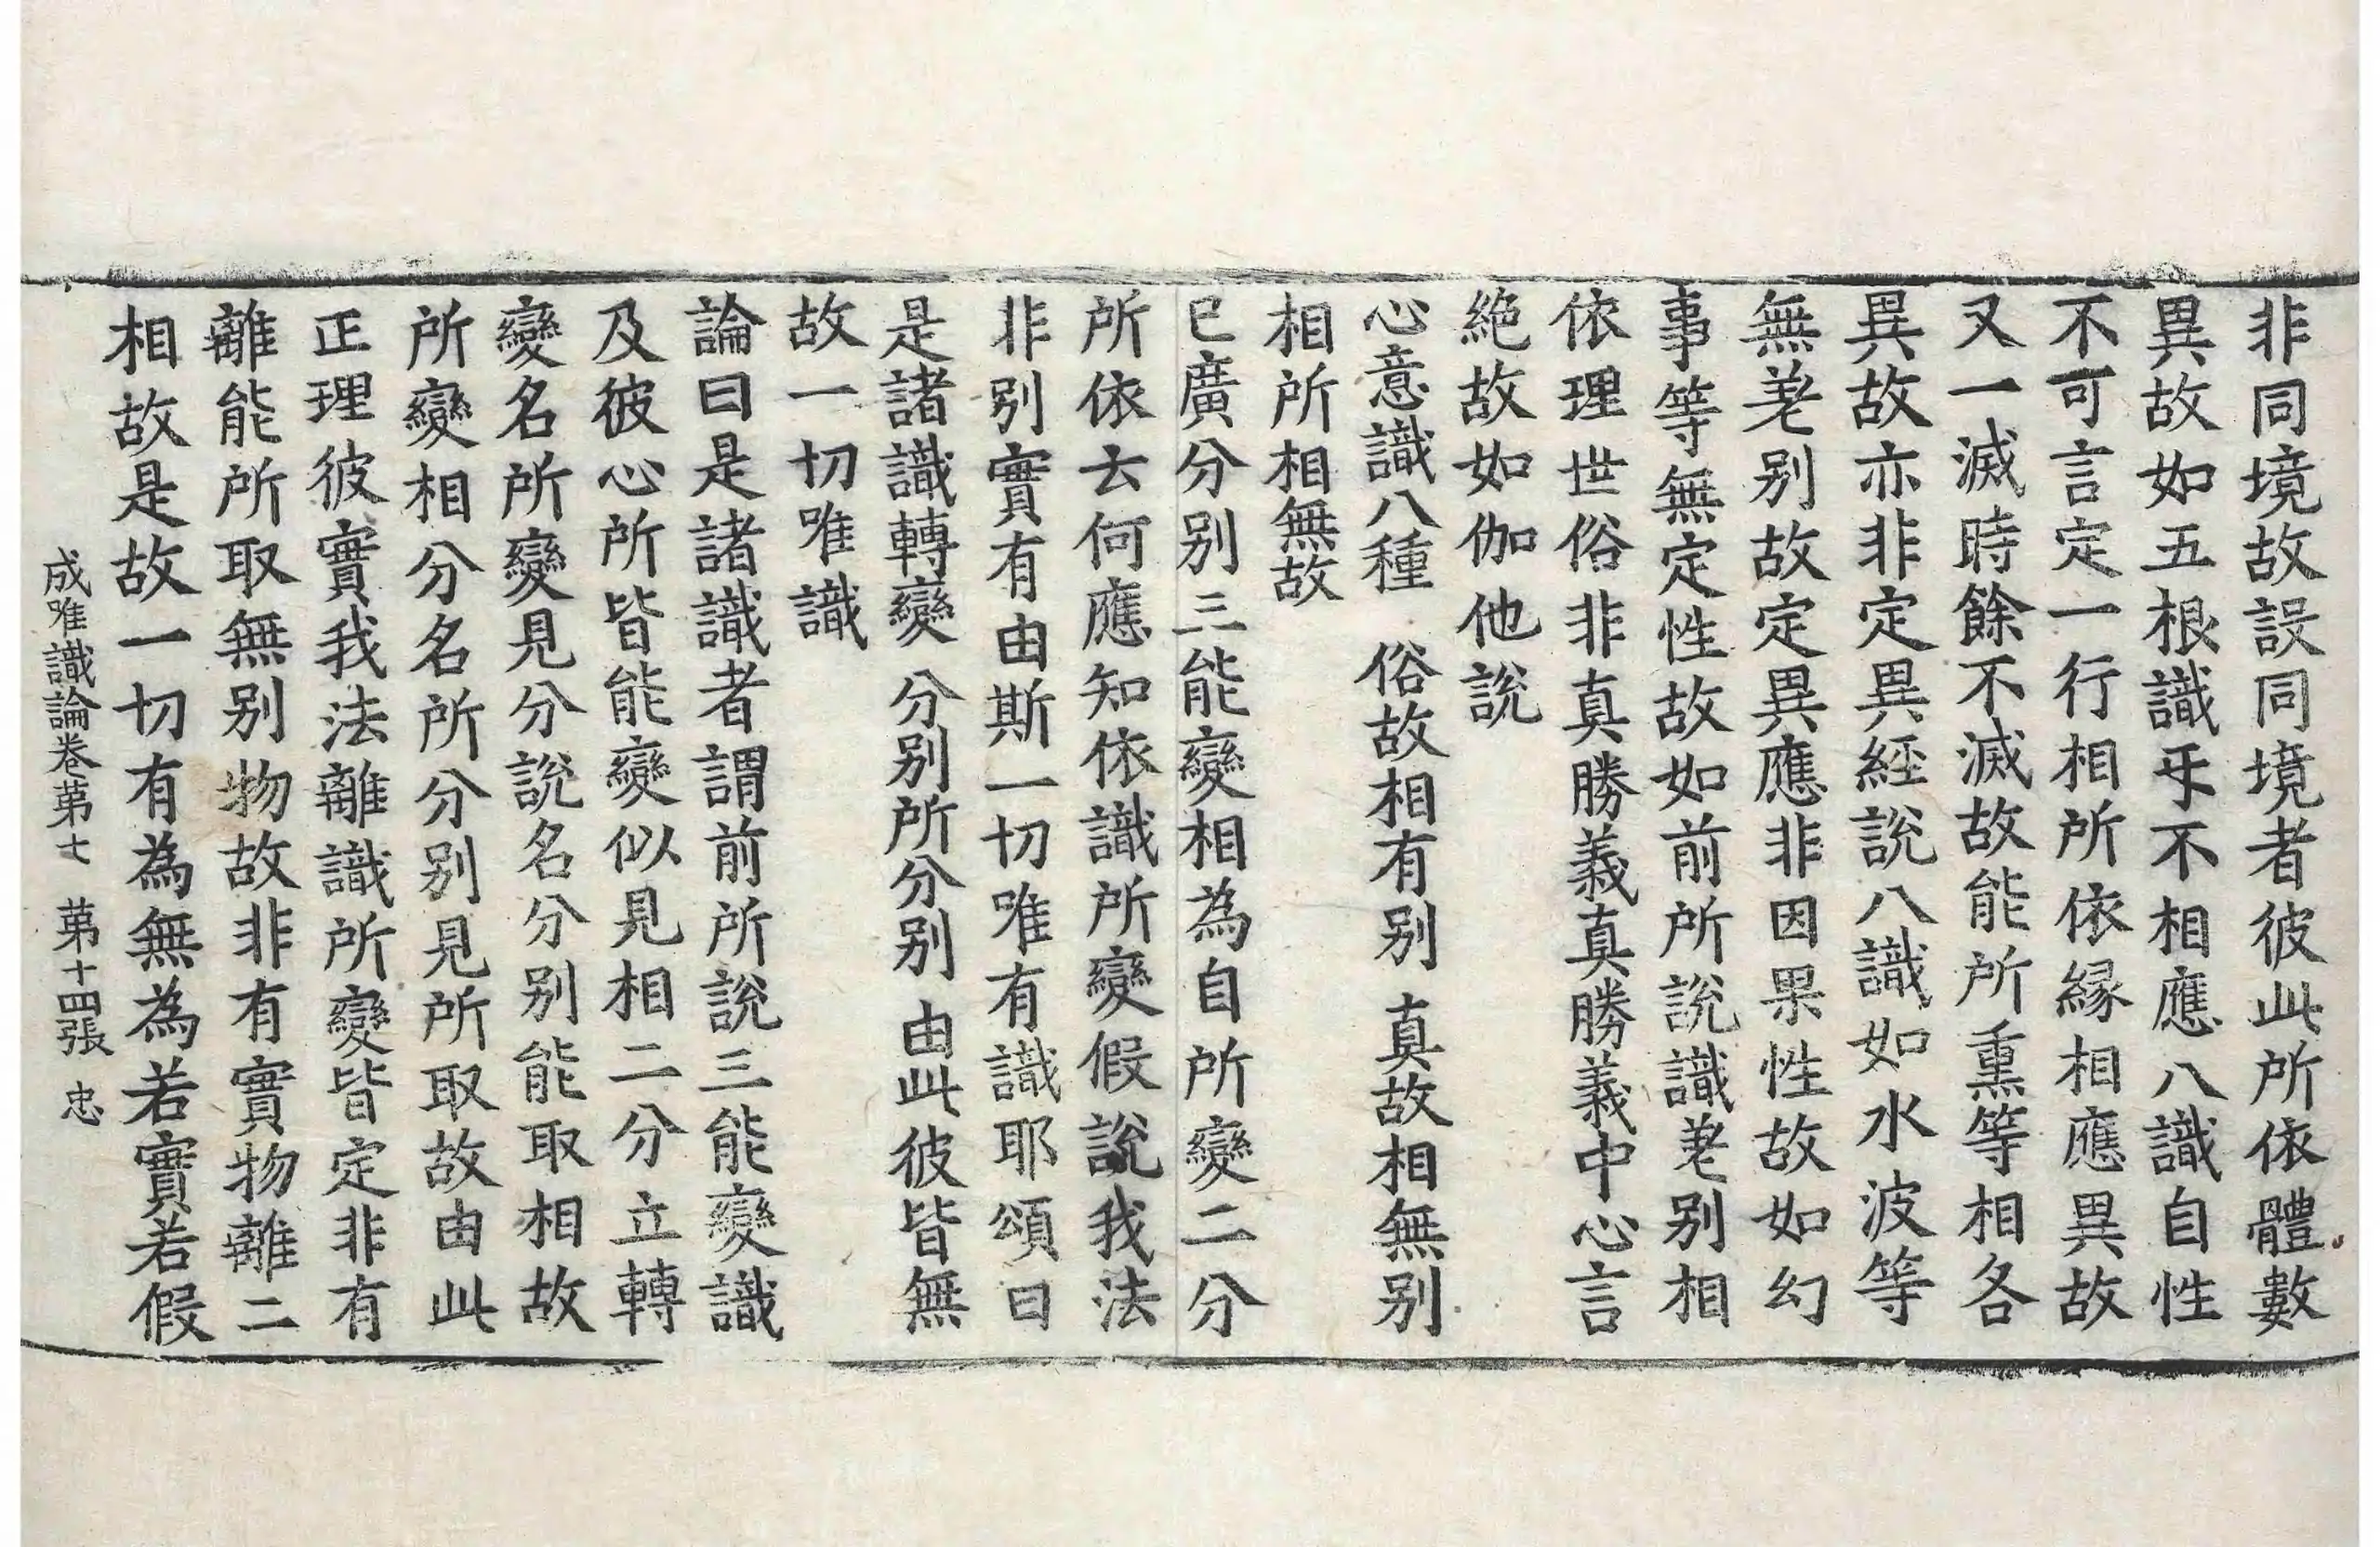 非同境故設同境者彼此所依體數
異故如五根識㸦不相應八識自性
不可言定一行相所依縁相應異故
又一滅時餘不滅故能所熏等相各
異故亦非定異經說八識如水波等
無差别故定異應非因果性故如幻
事等無定性故如前所說識差别相
依理世俗非真勝義真勝義中心言
絶故如伽他說
心意識八種　俗故相有别　真故相無别
相所相無故
已廣分别三能變相為自所變二分
所依云何應知依識所變假說我法
非别實有由斯一切唯有識耶頌曰
是諸識轉變　分别所分别　由此彼皆無
故一切唯識
論曰是諸識者謂前所說三能變識
及彼心所皆能變似見相二分立轉
變名所變見分說名分别能取相故
所變相分名所分别見所取故由此
正理彼實我法離識所變皆定非有
離能所取無别物故非有實物離二
相故是故一切有為無為若實若假
成唯識論卷第七　第十四張　忠